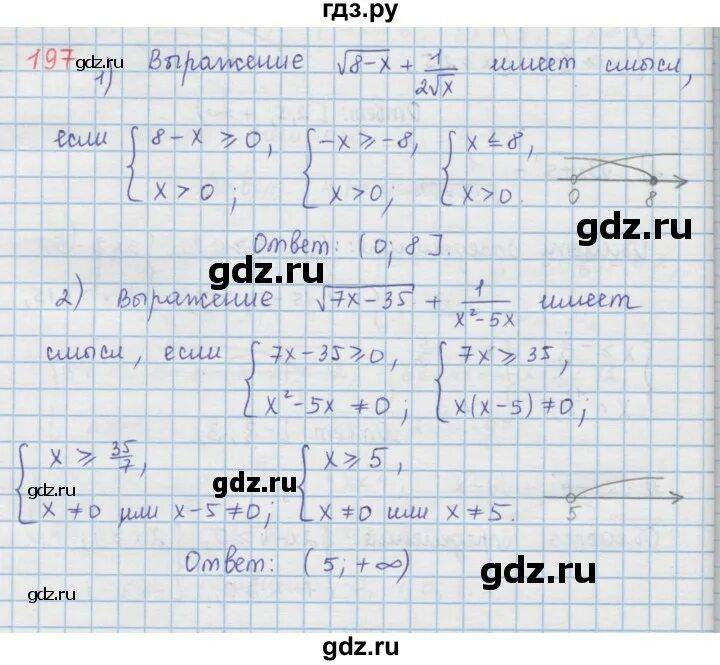 гдз.ру
gdz.ru
gdz.ru
197 1) Выражение √(8-x) + 1/(2√x) имеет смысл,
если { 8-x ≥ 0, x > 0; { -x ≥ -8, x > 0, { x ≤ 8, x > 0.
0 8
gdz.ru
Ответ: (0; 8].
gdz.ru
2) Выражение √(7x-35) + 1/(x²-5x) имеет
смысл, если { 7x-35 ≥ 0, x²-5x ≠ 0; { 7x ≥ 35, x(x-5) ≠ 0;
{ x ≥ 35/7, x ≠ 0 или x-5 ≠ 0; { x ≥ 5, x ≠ 0 или x ≠ 5.
5
gdz.ru
gdz.ru
gdz.ru
Ответ: (5; +∞)
gdz.ru
gdz.ru
gdz.ru